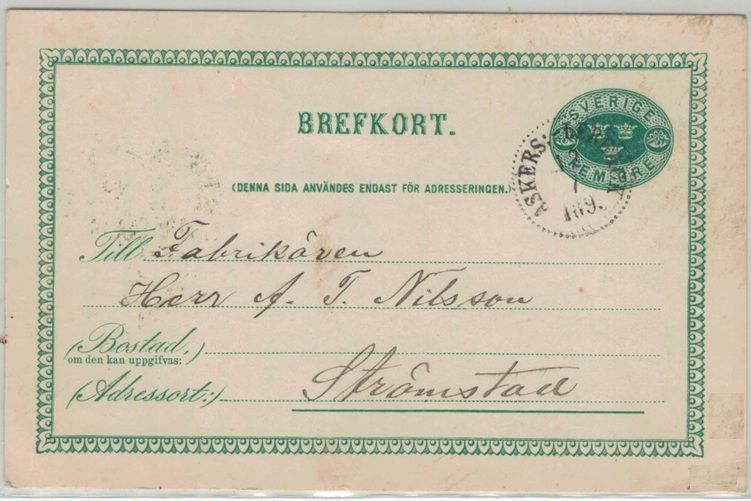 SVERIGE
FEM ÖRE
BREFKORT.
ASKERS
189
(DENNA SIDA ANVÄNDES ENDAST FÖR ADRESSERINGEN.
Till Fabrikören
Herr A. T. Nilsson
(Bostad,)
om den kan uppgifvas:
(Adressort:) Strömstad